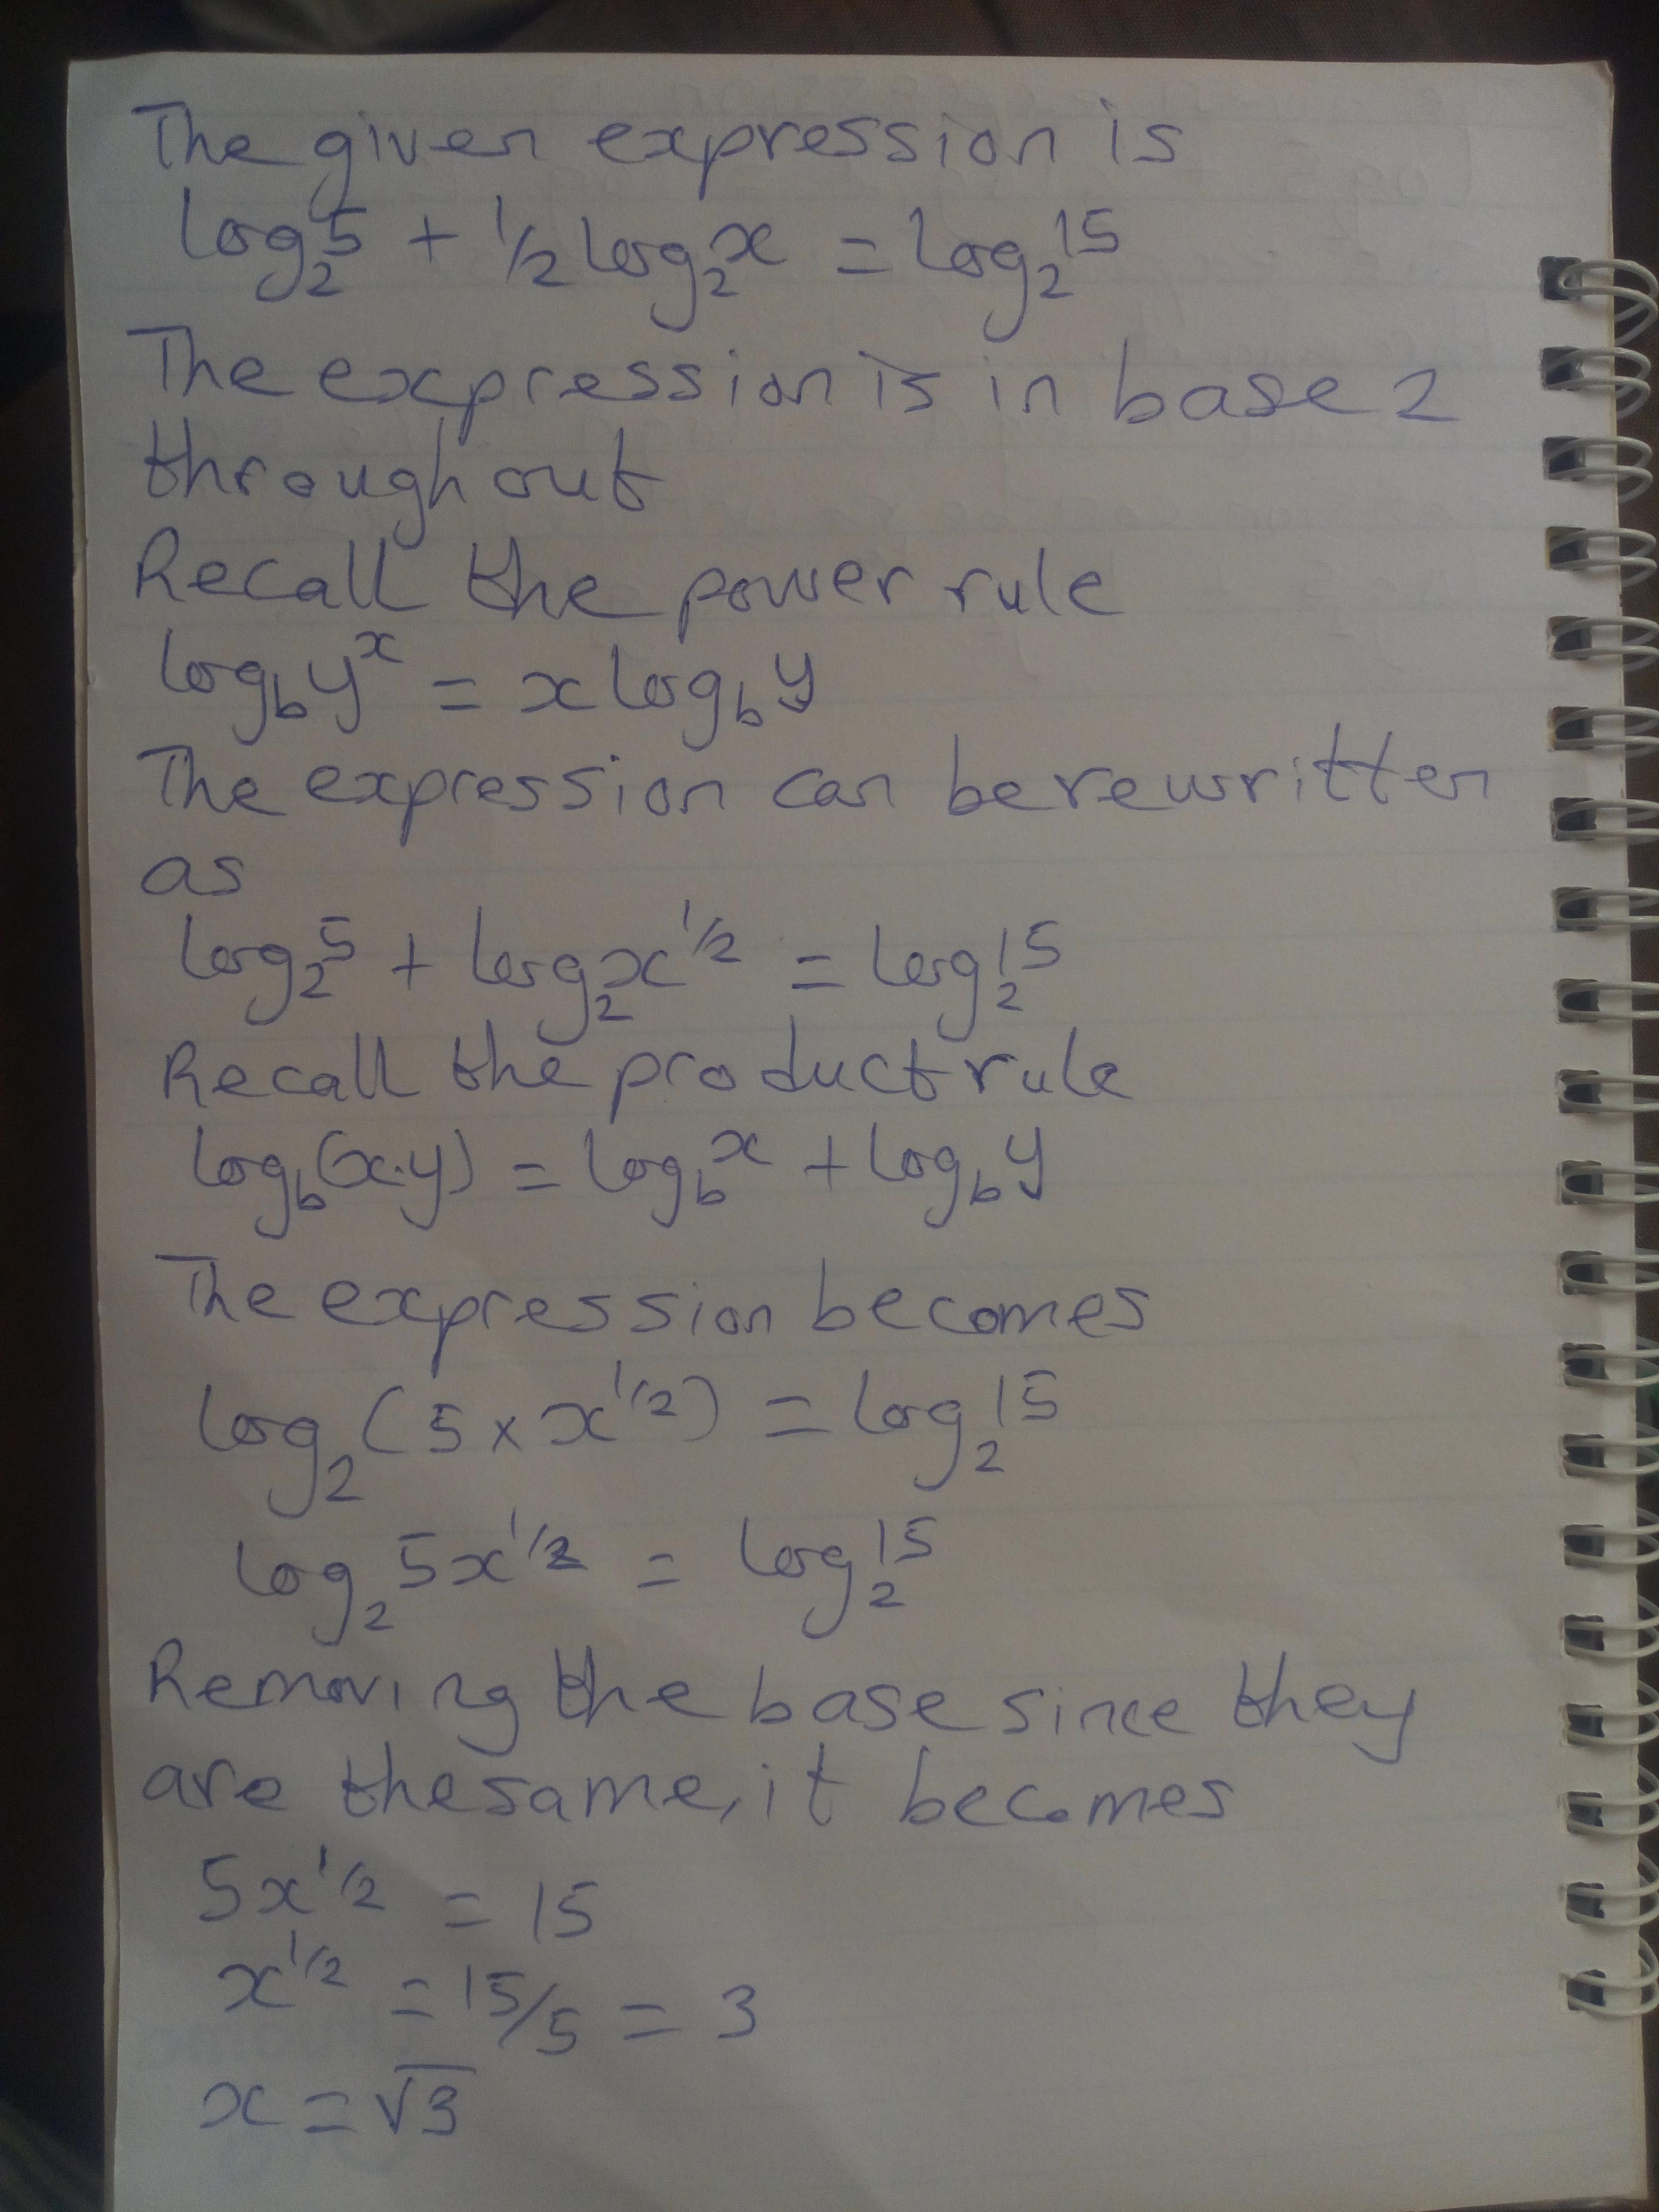 The given expression is
log₂5 + 1/2 log₂x = log₂15
The expression is in base 2
throughout
Recall the power rule
log_b y^x = x log_b y
The expression can be rewritten
as
log₂5 + log₂x^1/2 = log₂15
Recall the product rule
log_b(x·y) = log_b x + log_b y
The expression becomes
log₂(5 × x^1/2) = log₂15
log₂ 5x^1/2 = log₂15
Removing the base since they
are the same, it becomes
5x^1/2 = 15
x^1/2 = 15/5 = 3
x = √3